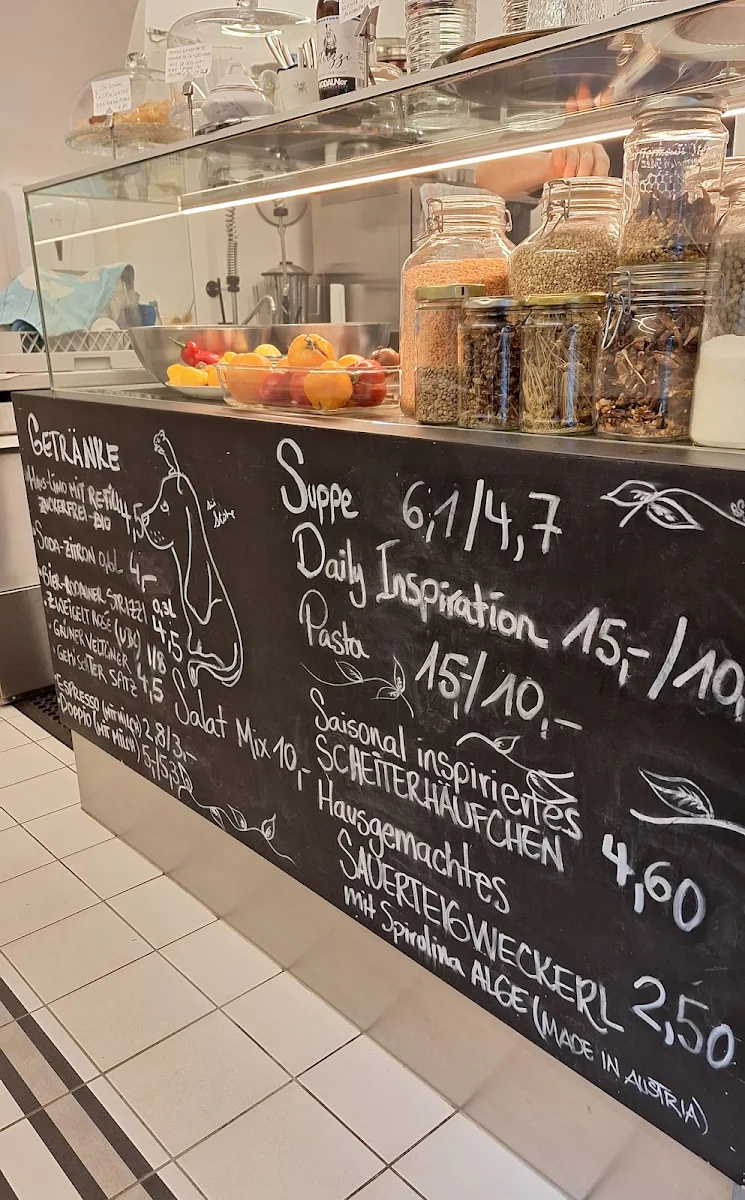 GETRÄNKE
HAUS-LIMO MIT REFILL 4,5
ZUCKERFREI-BIO
SODA-ZITRON 4,-
BIER-RODAUNER STRIZZI 0,3L 4,5
ZWEIGELT ROSÉ 1/8
GRÜNER VELTLINER 4,5
GEMISCHTER SATZ
ESPRESSO (MIT MILCH) 2,8/3,-
DOPPIO (MIT MILCH) 5,-/5,3
Salat Mix 10,-
Suppe 6,1/4,7
Daily Inspiration 15,-/10,
Pasta 15,-/10,-
Saisonal inspiriertes
SCHEITERHÄUFCHEN 4,60
Hausgemachtes
SAUERTEIGWECKERL 2,50
mit Spirulina ALGE (MADE IN AUSTRIA)